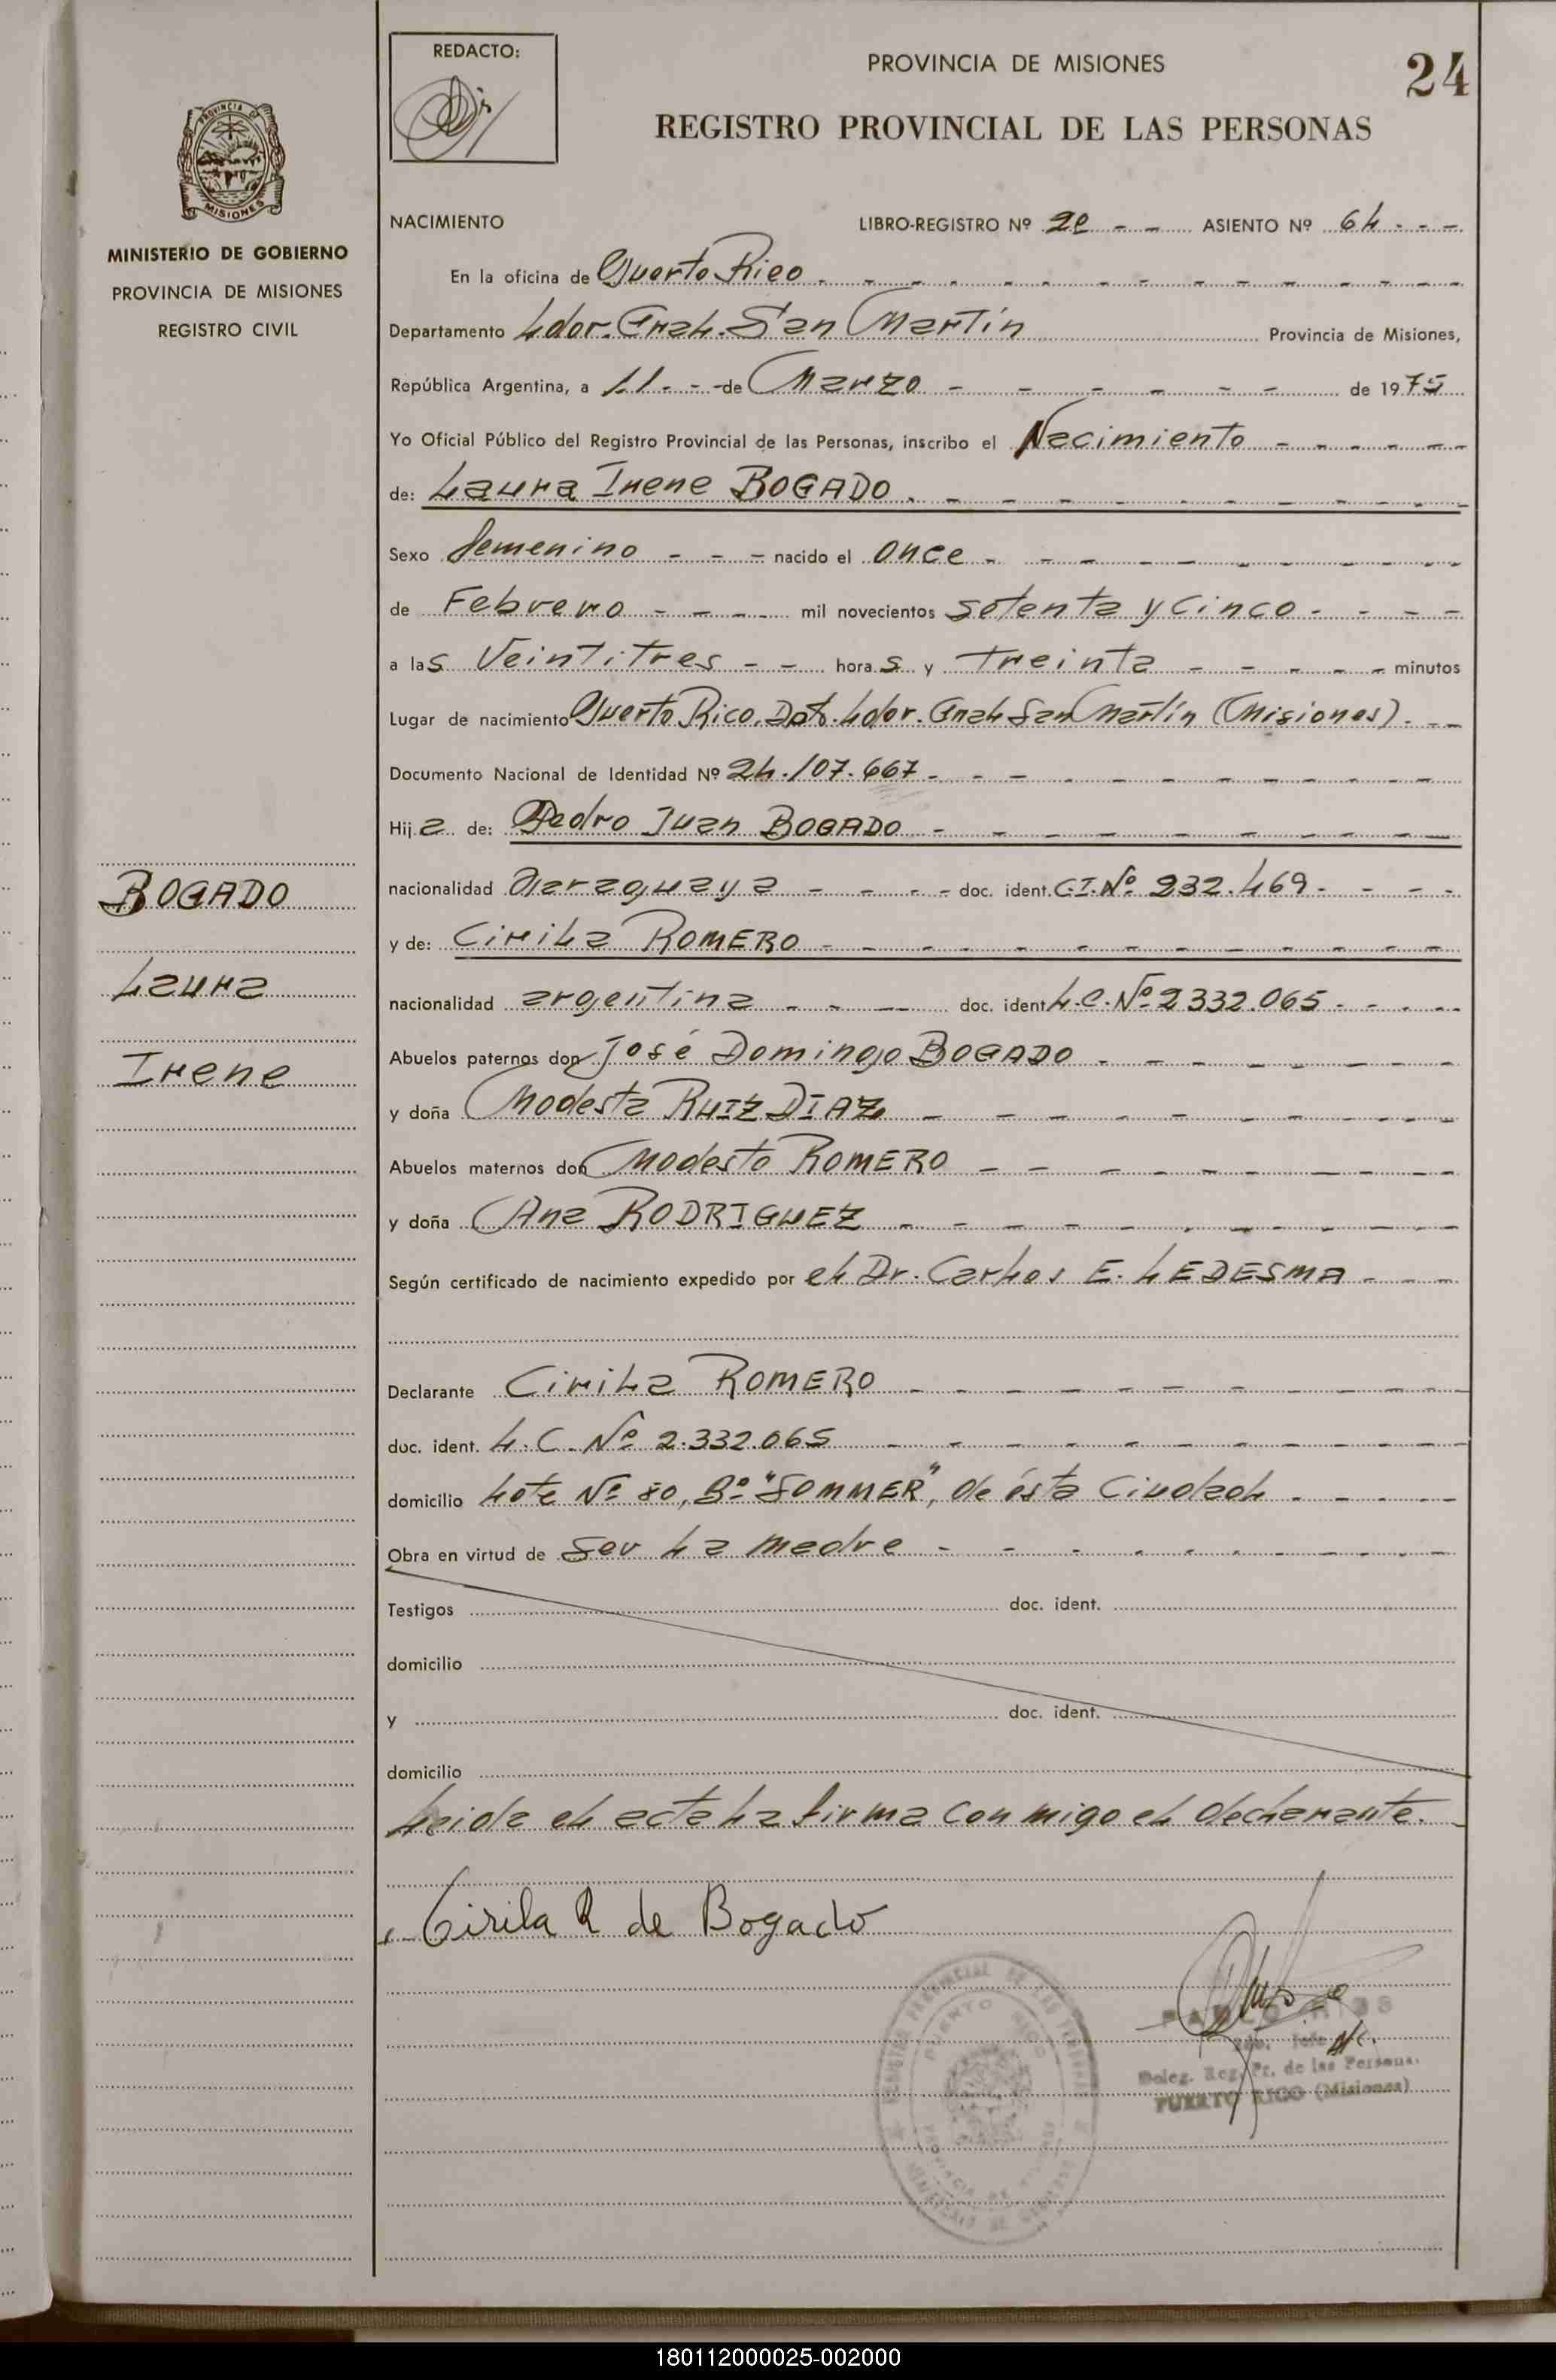 REDACTO:
PROVINCIA DE MISIONES
24
REGISTRO PROVINCIAL DE LAS PERSONAS
PROVINCIA DE
MISIONES
MINISTERIO DE GOBIERNO
PROVINCIA DE MISIONES
REGISTRO CIVIL
NACIMIENTO LIBRO-REGISTRO Nº 2º - - ASIENTO Nº 64 - - -
En la oficina de Puerto Rico
Departamento Ldor. Gral. San Martín Provincia de Misiones,
República Argentina, a 11 - - de Marzo - - - - - - de 1975
Yo Oficial Público del Registro Provincial de las Personas, inscribo el Nacimiento
de: Laura Irene BOGADO
Sexo femenino - - - nacido el once
de Febrero - - - mil novecientos setenta y cinco
a las Veintitres - - horas y treinta - - - - - minutos
Lugar de nacimiento Puerto Rico, Dpto. Ldor. Gral San Martín (Misiones)
Documento Nacional de Identidad Nº 24.107.667
Hija de: Pedro Juan BOGADO
nacionalidad paraguaya - - - - doc. ident. C.I. Nº 232.469
y de: Cirila ROMERO
nacionalidad argentina - - - doc. ident L.C. Nº 2332.065
Abuelos paternos don José Domingo BOGADO
y doña Modesta RUIZ DIAZ
Abuelos maternos don Modesto ROMERO
y doña Ana RODRIGUEZ
Según certificado de nacimiento expedido por el Dr. Carlos E. LEDESMA
Declarante Cirila ROMERO
doc. ident. L.C. Nº 2.332.065
domicilio Lote Nº 80, Bº "SOMMER", de ésta Ciudad
Obra en virtud de ser la madre
Testigos doc. ident.
domicilio
y doc. ident.
domicilio
Leida el acta la firma conmigo el declarante.
Cirila R de Bogado
BOGADO
Laura
Irene
Deleg. Reg. Pr. de las Persona.
PUERTO RICO (Misiones)
180112000025-002000